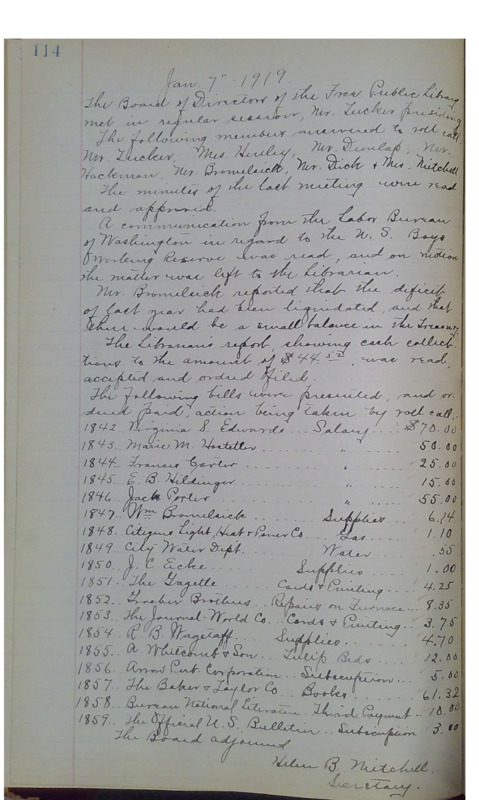 114
Jan. 7" - 1919
The Board of Directors of the Free Public Library
met in regular session, Mr. Tucker presiding
The following members answered to roll call
Mr. Tucker, Mrs. Henley, Mr. Dunlap, Mr.
Hackman, Mr. Bromelsick, Mr. Dick & Mrs. Mitchell
The minutes of the last meeting were read
and approved.
A communication from the Labor Bureau
of Washington in regard to the U. S. Boys
Working Reserve was read, and on motion
the matter was left to the Librarian.
Mr. Bromelsick reported that the deficit
of last year had been liquidated, and that
there would be a small balance in the Treasury.
The Librarian's report, showing cash collec-
tions to the amount of $44 52, was read,
accepted and ordred filed.
The following bills were presented, and or-
dred paid, action being taken by roll call,-
1842. Virginia S. Edwards... Salary.... $70.00
1843. Marie M. Hostetter " 50.00
1844. Frances " 25.00
1845. E. B. Hilsinger " 15.00
1846. Jack Porter " 55.00
1847. Wm Bromelsick Supplies... 6.14
1848. Citizens Light, Heat & Power Co Gas... 1.10
1849. City Water Dept. Water.... .55
1850. J. C. Supplies.... 1.00
1851. The Gazette.... Cards & Printing.... 4.25
1852. Graeber Brothers.. Repairs on Furnace... 8.35
1853. The Journal-World Co... Cards & Printing.. 3.75
1854. R. B. Wagstaff.... Supplies..... 4.70
1855. A. Whitcomb & Son... Tulip Beds.... 12.00
1856. Arrow Pub. Corporation... Subscription... 5.00
1857. The Baker & Taylor Co... Books...... 61.32
1858. Bureau National Literature Third Payment.. 10.00
1859. The Official U. S. Bulletin.. Subscription 3.00
The Board adjourned
Helen B. Mitchell.
Secretary.